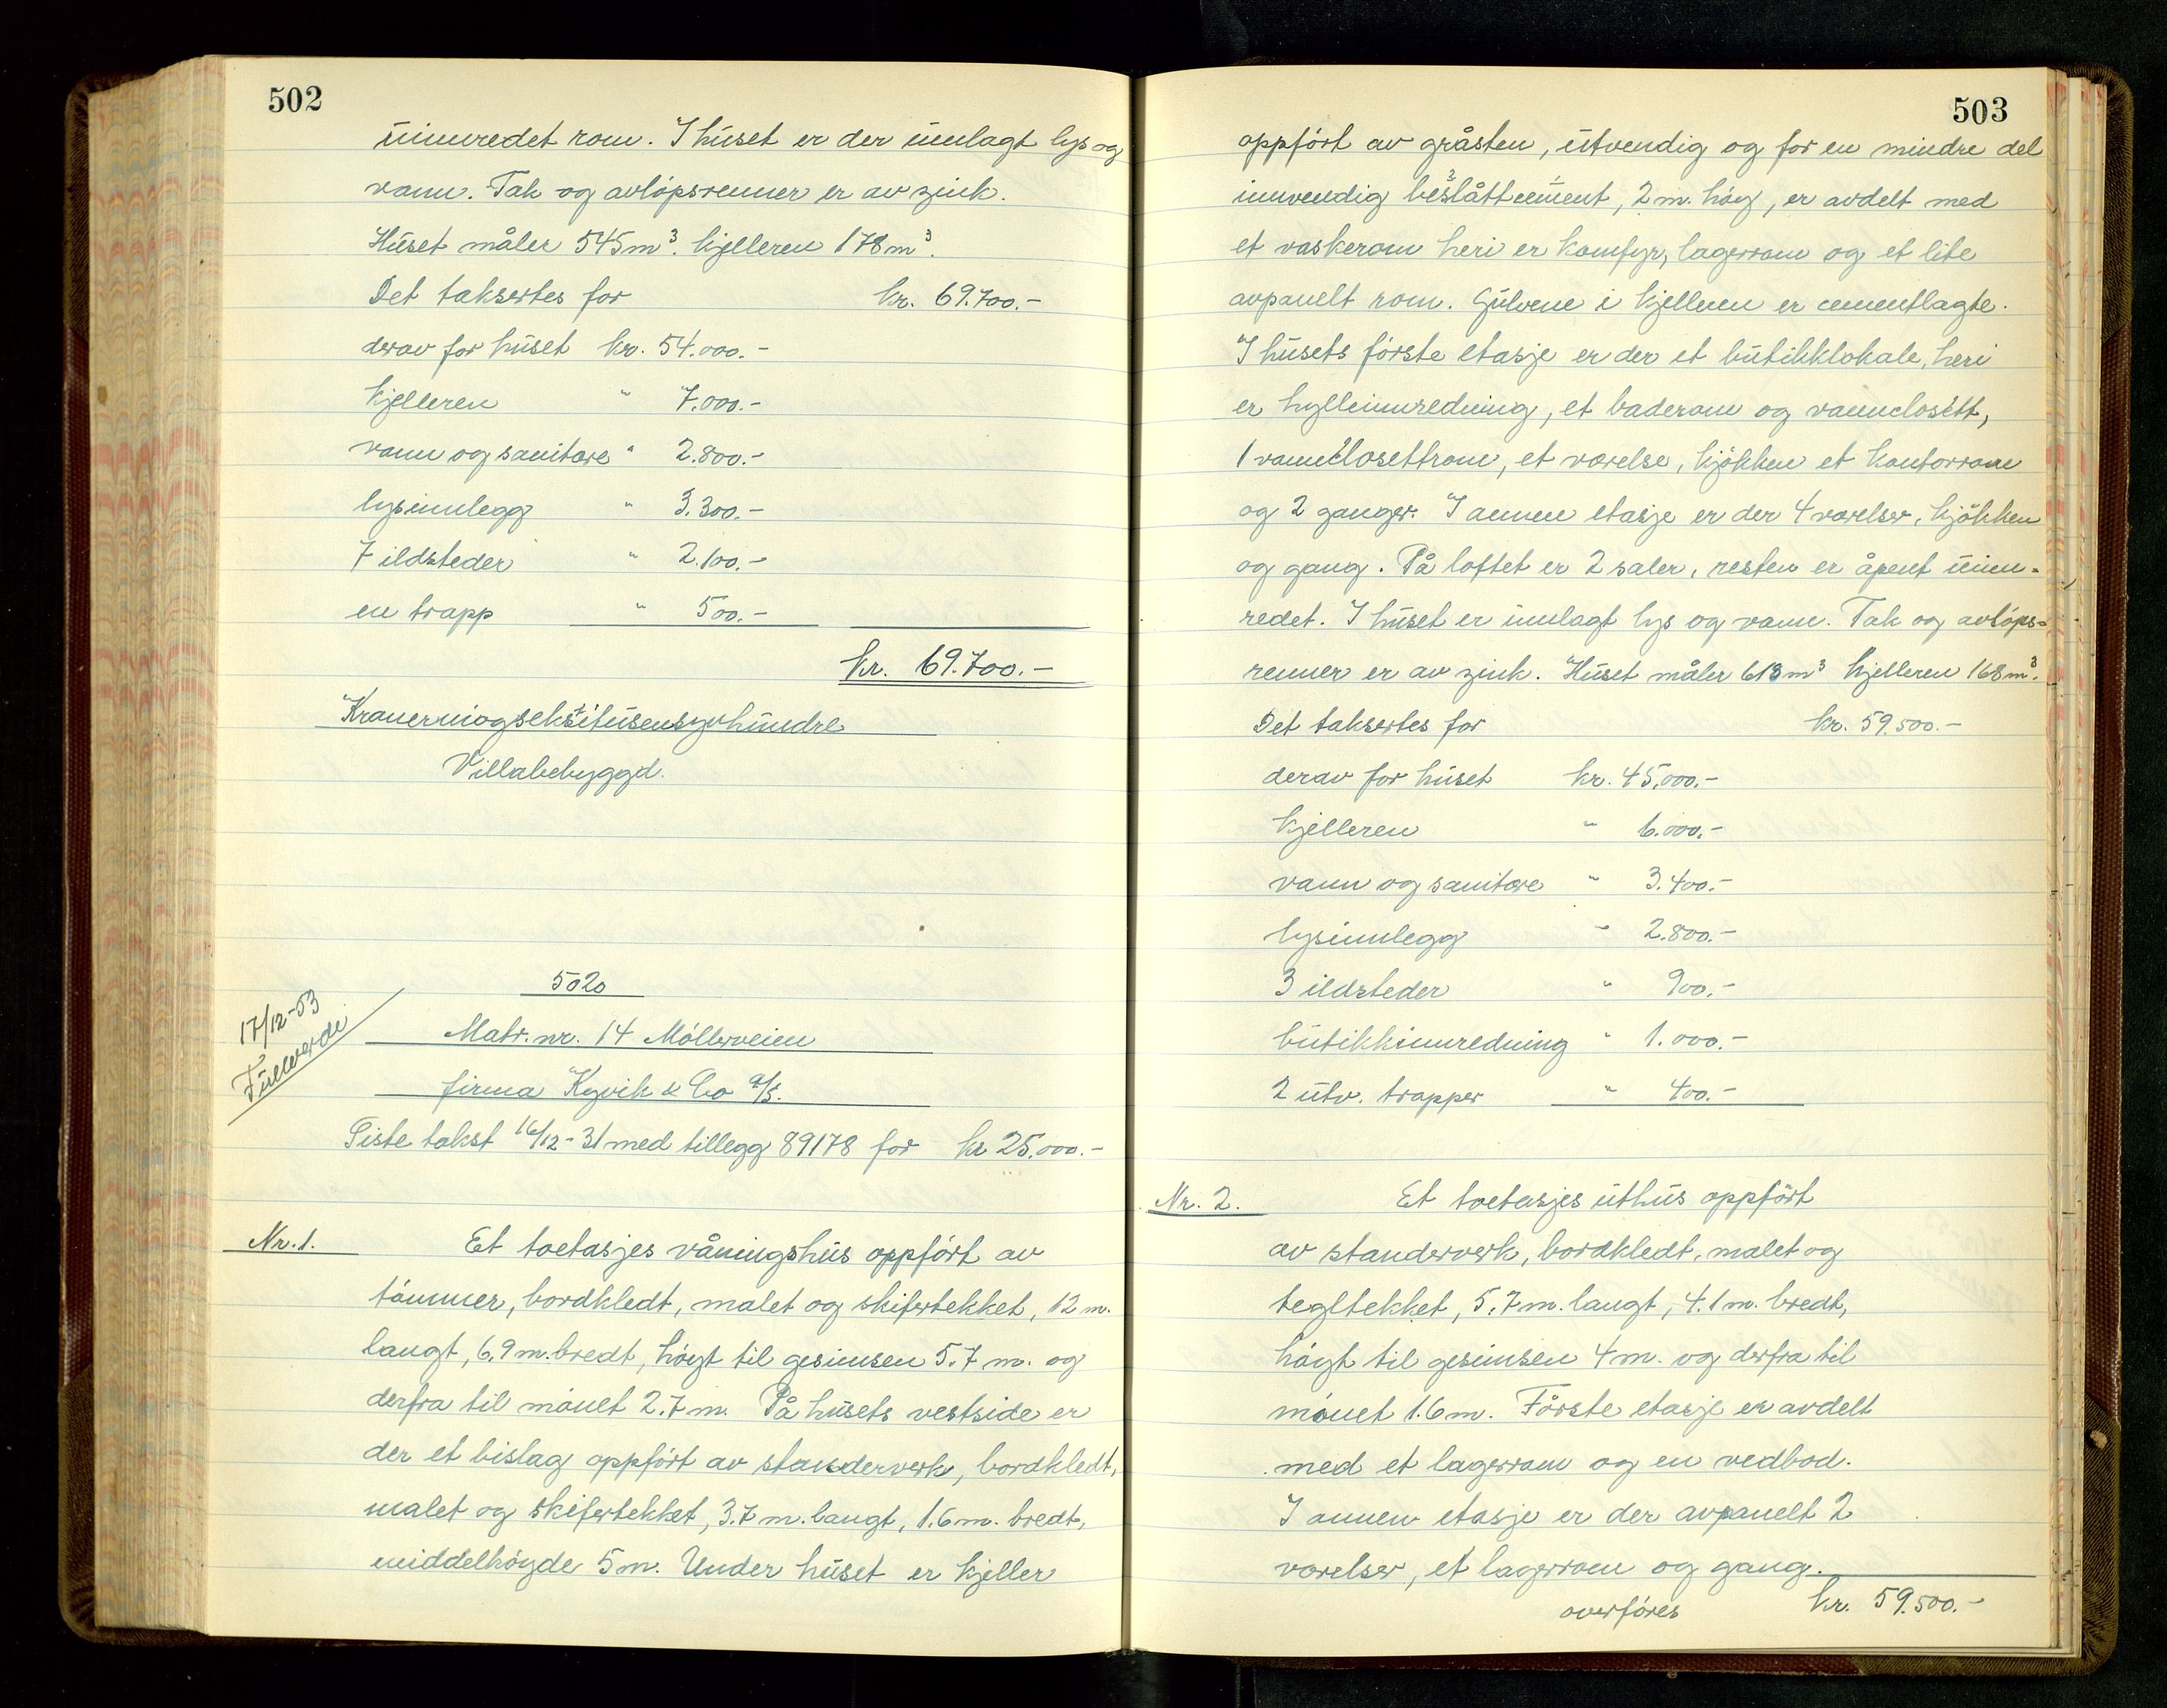 502
uinnredet rom. I huset er der innlagt lys og
vann. Tak og avløpsrenner er av zink.
Huset måler 545 m³. kjelleren 178 m³.
Det taksertes for kr. 69.700.-
derav for huset kr. 54.000.-
kjelleren " 7.000.-
vann og sanitære " 2.800.-
lysinnlegg " 3.300.-
7 ildsteder " 2.100.-
en trapp " 500.-
kr. 69.700.-
Kronerniogsekstitusensyvhundre
Villabebyggd.
5020
17/12-53
Fullverdi
Matr. nr. 14 Möllerveien
firma Kyvik & Co a/s.
Siste takst 16/12-31 med tillegg 89178 for kr 25.000.-
Nr. 1. Et toetasjes våningshus oppfört av
tömmer, bordkledt, malet og skifertekket, 12 m.
langt, 6,9 m. bredt, höyt til gesimsen 5.7 m. og
derfra til mönet 2.7 m. På husets vestside er
der et bislag oppfört av standerverk, bordkledt,
malet og skifertekket, 3.7 m. langt, 1.6 m. bredt,
middelhöyde 5 m. Under huset er kjeller
503
oppfört av gråsten, utvendig og for en mindre del
innvendig beslåttcement, 2 m. höy, er avdelt med
et vaskerom heri er komfyr, lagerrom og et lite
avpanelt rom. Gulvene i kjelleren er cementlagte.
I husets förste etasje er der et butikklokale, heri
er hylleinnredning, et baderom og vannclosett,
1 vannclosettrom, et værelse, kjökken et kontorrom
og 2 ganger. I annen etasje er der 4 værelser, kjökken
og gang. På loftet er 2 saler, resten er åpent uinn-
redet. I huset er innlagt lys og vann. Tak og avlöps-
renner er av zink. Huset måler 613 m³ kjelleren 168 m³.
Det taksertes for kr. 59.500.-
derav for huset kr. 45.000.-
kjelleren " 6.000.-
vann og sanitære " 3.400.-
lysinnlegg " 2.800.-
3 ildsteder " 900.-
butikkinnredning " 1.000.-
2 utv. trapper " 400.-
Nr. 2. Et toetasjes uthus oppfört
av standerverk, bordkledt, malet og
tegltekket, 5.7 m. langt, 4.1 m. bredt,
höyt til gesimsen 4 m. og derfra til
mönet 1.6 m. Förste etasje er avdelt
med et lagerrom og en vedbod.
I annen etasje er der avpanelt 2
værelser, et lagerrom og gang.
overföres kr. 59.500.-